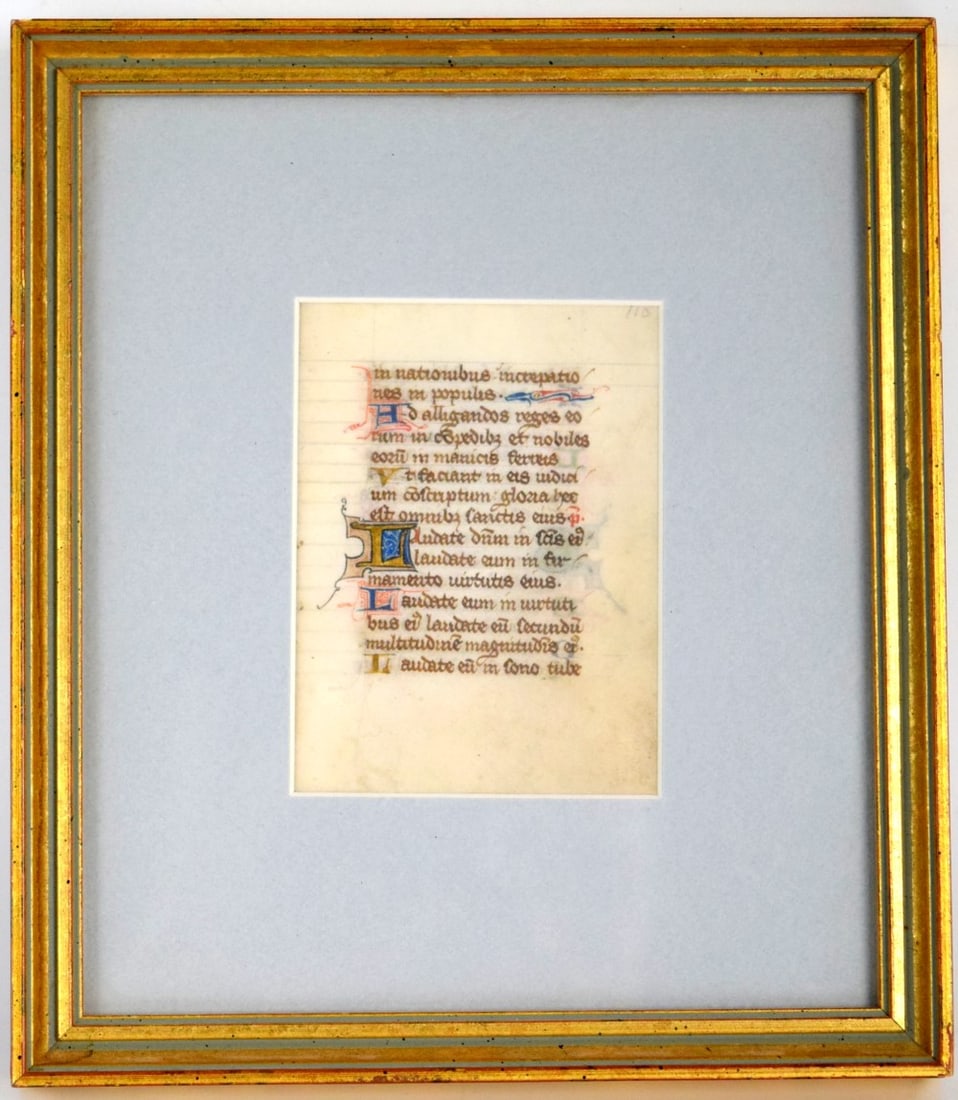 110
in nationibus increpatio
nes in populis.
Ad alligandos reges eo
rum in cōpedibꝫ et nobiles
eorū in manicis ferreis
Vt faciant in eis iudici
um cōscriptum gloria hec
est omnibꝫ sanctis eius p̄.
Laudate dn̄m in sc̄is ei᾽
laudate eum in fir
mamento uirtutis eius.
Laudate eum in uirtuti
bus ei᾽ laudate eū secundū
multitudinē magnitudīs ei᾽.
Laudate eū in sono tube